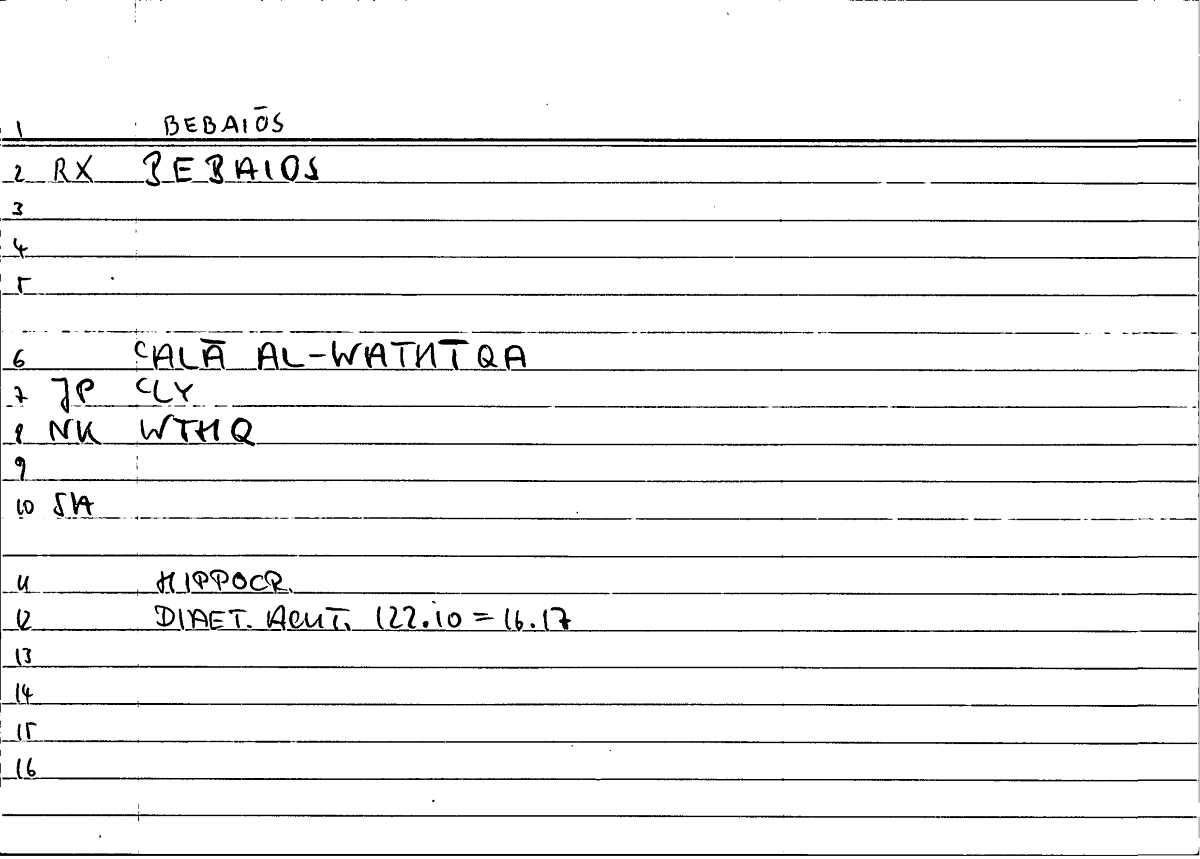 1 BEBAIŌS
2 RX BEBAIOS
3
4
5
6 ʿALĀ AL-WATHĪQA
7 JP ʿLY
8 NK WTHQ
9
10 SIA
11 HIPPOCR.
12 DIAET. ACUT. 122.10 = 16.17
13
14
15
16